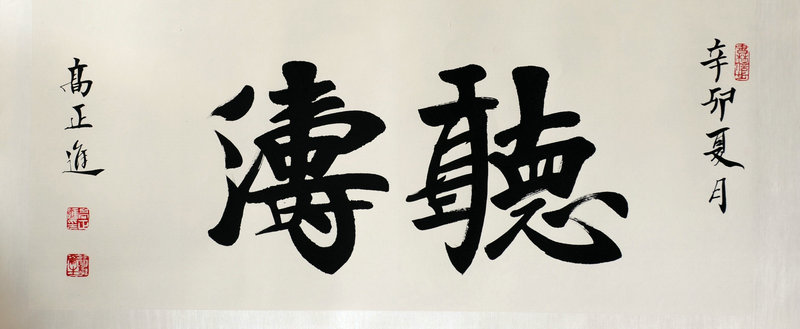 辛卯夏月
聽濤
高正進